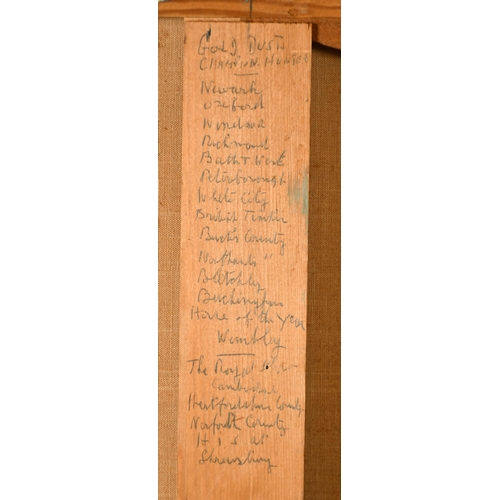 Gold Dust
Champion Hunter
Newark
Oxford
Windsor
Richmond
Bath & West
Peterborough
White City
British Timken
Bucks County
Northants "
Bletchley
Buckingham
Horse of the Year
Wembley
The Royal
Cambridge
Hertfordshire County
Norfolk County
at
Shrewsbury